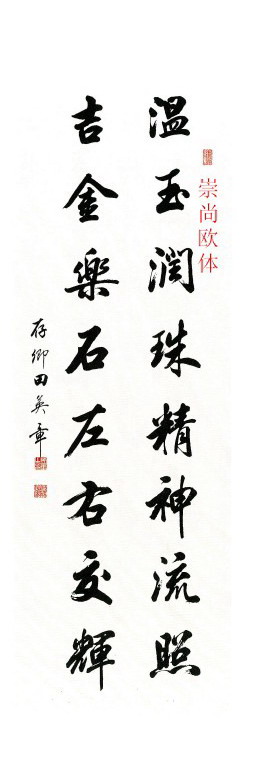 温玉润珠精神流照
吉金樂石左右交輝
存卿田英章
崇尚欧体